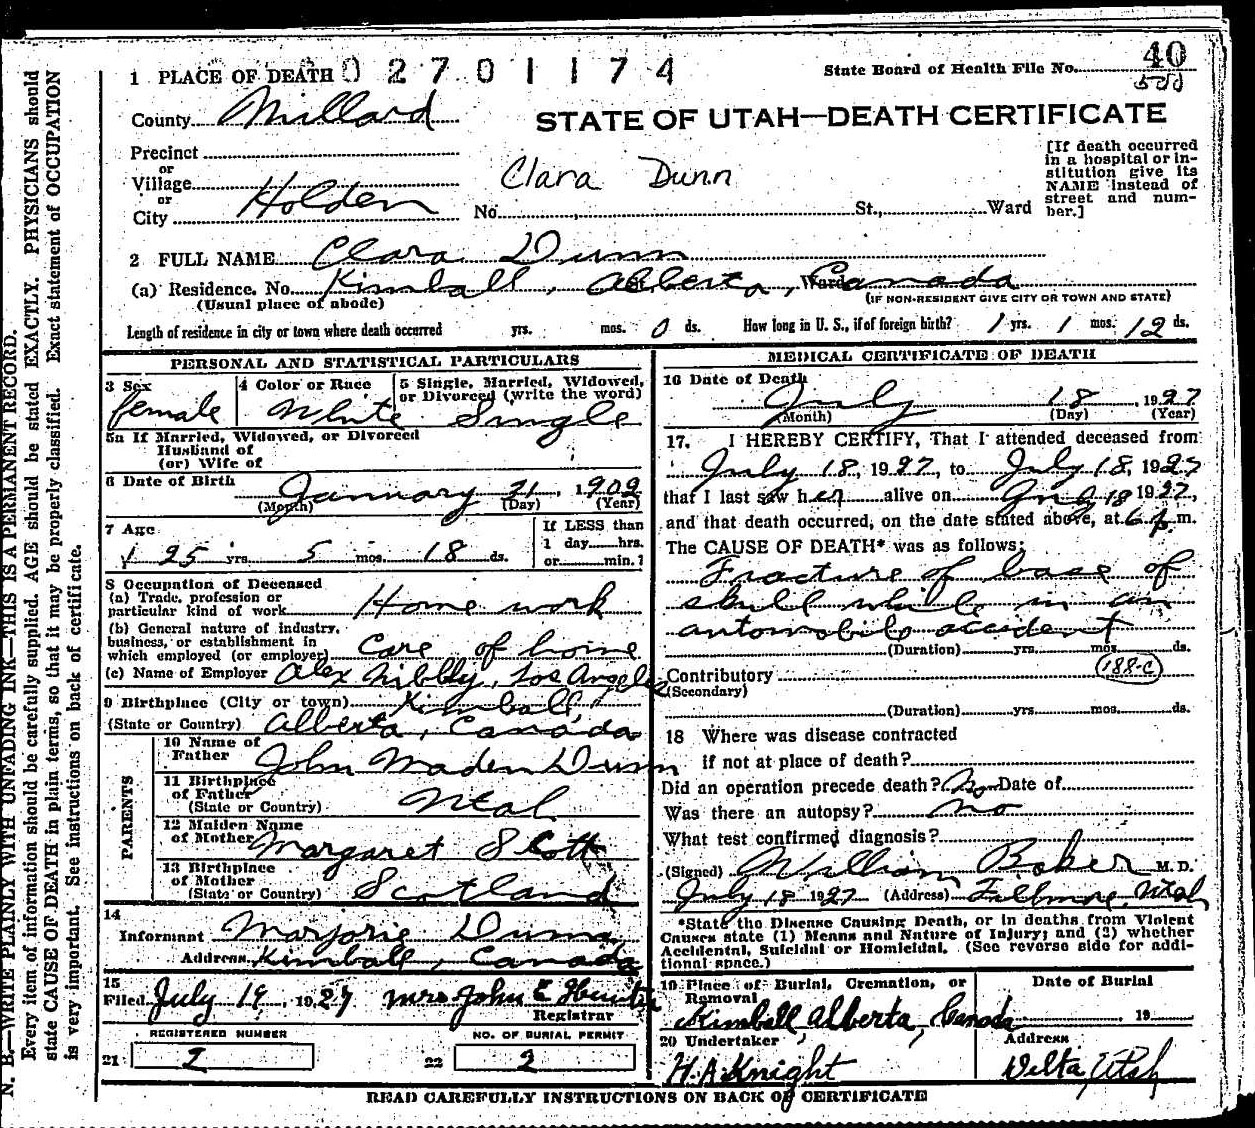 40
State Board of Health File No.
1 PLACE OF DEATH 0 2 7 0 1 1 7 4
County Millard
STATE OF UTAH—DEATH CERTIFICATE
Precinct
or
Village
or
City Holden
Clara Dunn
No. St., Ward
[If death occurred
in a hospital or in-
stitution give its
NAME instead of
street and num-
ber.]
2 FULL NAME Clara Dunn
(a) Residence. No. Kimball, Alberta, Ward Canada
(Usual place of abode) (IF NON-RESIDENT GIVE CITY OR TOWN AND STATE)
Length of residence in city or town where death occurred yrs. mos. 0 ds. How long in U. S., if of foreign birth? 1 yrs. 1 mos. 12 ds.
PERSONAL AND STATISTICAL PARTICULARS
3 Sex
female
4 Color or Race
White
5 Single, Married, Widowed,
or Divorced (write the word)
Single
5a If Married, Widowed, or Divorced
Husband of
(or) Wife of
6 Date of Birth
January 21, 1902
(Month) (Day) (Year)
7 Age
25 yrs. 5 mos. 18 ds.
If LESS than
1 day hrs.
or min.?
8 Occupation of Deceased
(a) Trade, profession or
particular kind of work Home work
(b) General nature of industry,
business, or establishment in
which employed (or employer) Care of home
(c) Name of Employer Alex Nibbly, Los Angeles
9 Birthplace (City or town) Kimball,
(State or Country) Alberta, Canada
PARENTS
10 Name of
Father John Maden Dunn
11 Birthplace
of Father
(State or Country) Utah
12 Maiden Name
of Mother Margaret Scott
13 Birthplace
of Mother
(State or Country) Scotland
14
Informant Marjorie Dunn
Address Kimball, Canada
15
Filed July 19, 1927 Mrs John E Hunter
Registrar
REGISTERED NUMBER
21 2
NO. OF BURIAL PERMIT
22 2
MEDICAL CERTIFICATE OF DEATH
16 Date of Death
July 18, 1927
(Month) (Day) (Year)
17. I HEREBY CERTIFY, That I attended deceased from
July 18, 1927, to July 18, 1927
that I last saw her alive on July 18 1927,
and that death occurred, on the date stated above, at 6 p.m.
The CAUSE OF DEATH* was as follows:
Fracture of base of
skull while in an
automobile accident
(Duration) yrs. mos. ds.
Contributory 188-c
(Secondary)
(Duration) yrs. mos. ds.
18 Where was disease contracted
if not at place of death?
Did an operation precede death? No Date of
Was there an autopsy? no
What test confirmed diagnosis?
(Signed) William Baker M.D.
July 18 1927 (Address) Fillmore, Utah
*State the Disease Causing Death, or in deaths from Violent
Causes state (1) Means and Nature of Injury; and (2) whether
Accidental, Suicidal or Homicidal. (See reverse side for addi-
tional space.)
19 Place of Burial, Cremation, or
Removal
Kimball Alberta, Canada
Date of Burial
, 19
20 Undertaker
H.A. Knight
Address
Delta, Utah
READ CAREFULLY INSTRUCTIONS ON BACK OF CERTIFICATE
N. B.—WRITE PLAINLY WITH UNFADING INK—THIS IS A PERMANENT RECORD.
Every item of information should be carefully supplied. AGE should be stated EXACTLY. PHYSICIANS should
state CAUSE OF DEATH in plain terms, so that it may be properly classified. Exact statement of OCCUPATION
is very important. See instructions on back of certificate.